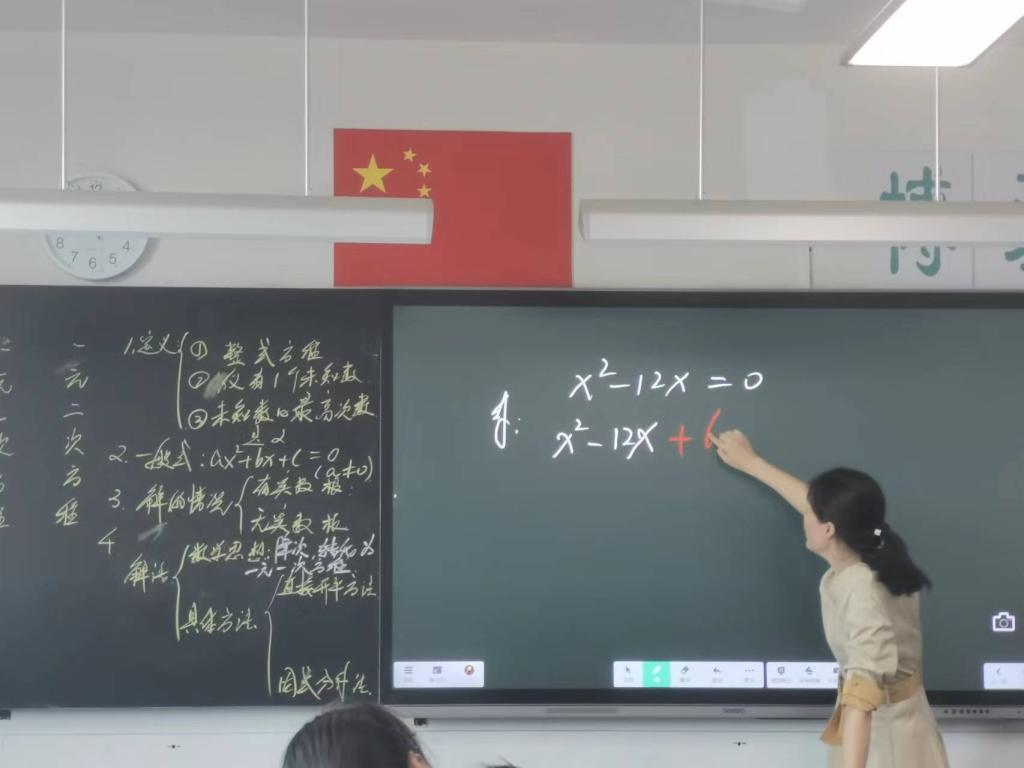 博
12
8 7 6 5 4
一元二次方程
1.定义:
① 整式方程
② 仅有1个未知数
③ 未知数的最高次数
是2
2. 一般式: ax²+bx+c=0
(a≠0)
3. 解的情况
有实数根.
无实数根
4
解法
数学思想: 降次, 转化为
一元一次方程.
具体方法
直接开平方法
因式分解法.
x²-12x=0
解:
x²-12x+6